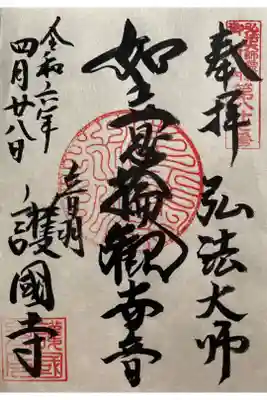 奉拝　弘法大師
如意輪観世音
音羽　護國寺
令和六年
四月廿八日